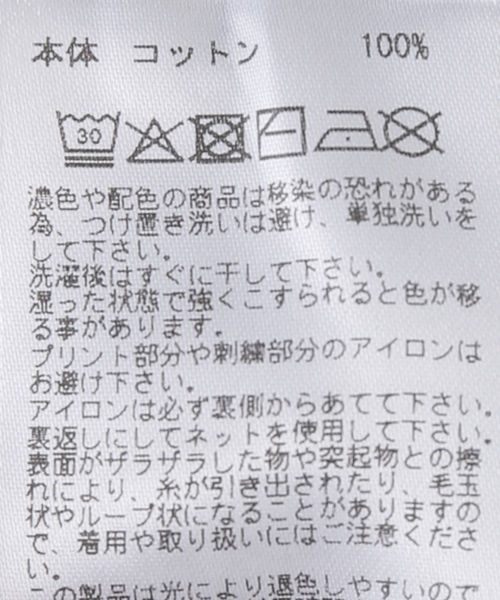 本体 コットン 100%
30
濃色や配色の商品は移染の恐れがある
為、つけ置き洗いは避け、単独洗いを
して下さい。
洗濯後はすぐに干して下さい。
湿った状態で強くこすられると色が移
る事があります。
プリント部分や刺繍部分のアイロンは
お避け下さい。
アイロンは必ず裏側からあてて下さい。
裏返しにしてネットを使用して下さい。
表面がザラザラした物や突起物との擦
れにより、糸が引き出されたり、毛玉
状やループ状になることがありますの
で、着用や取り扱いにはご注意くださ
い。
この製品は光により退色しやすいので